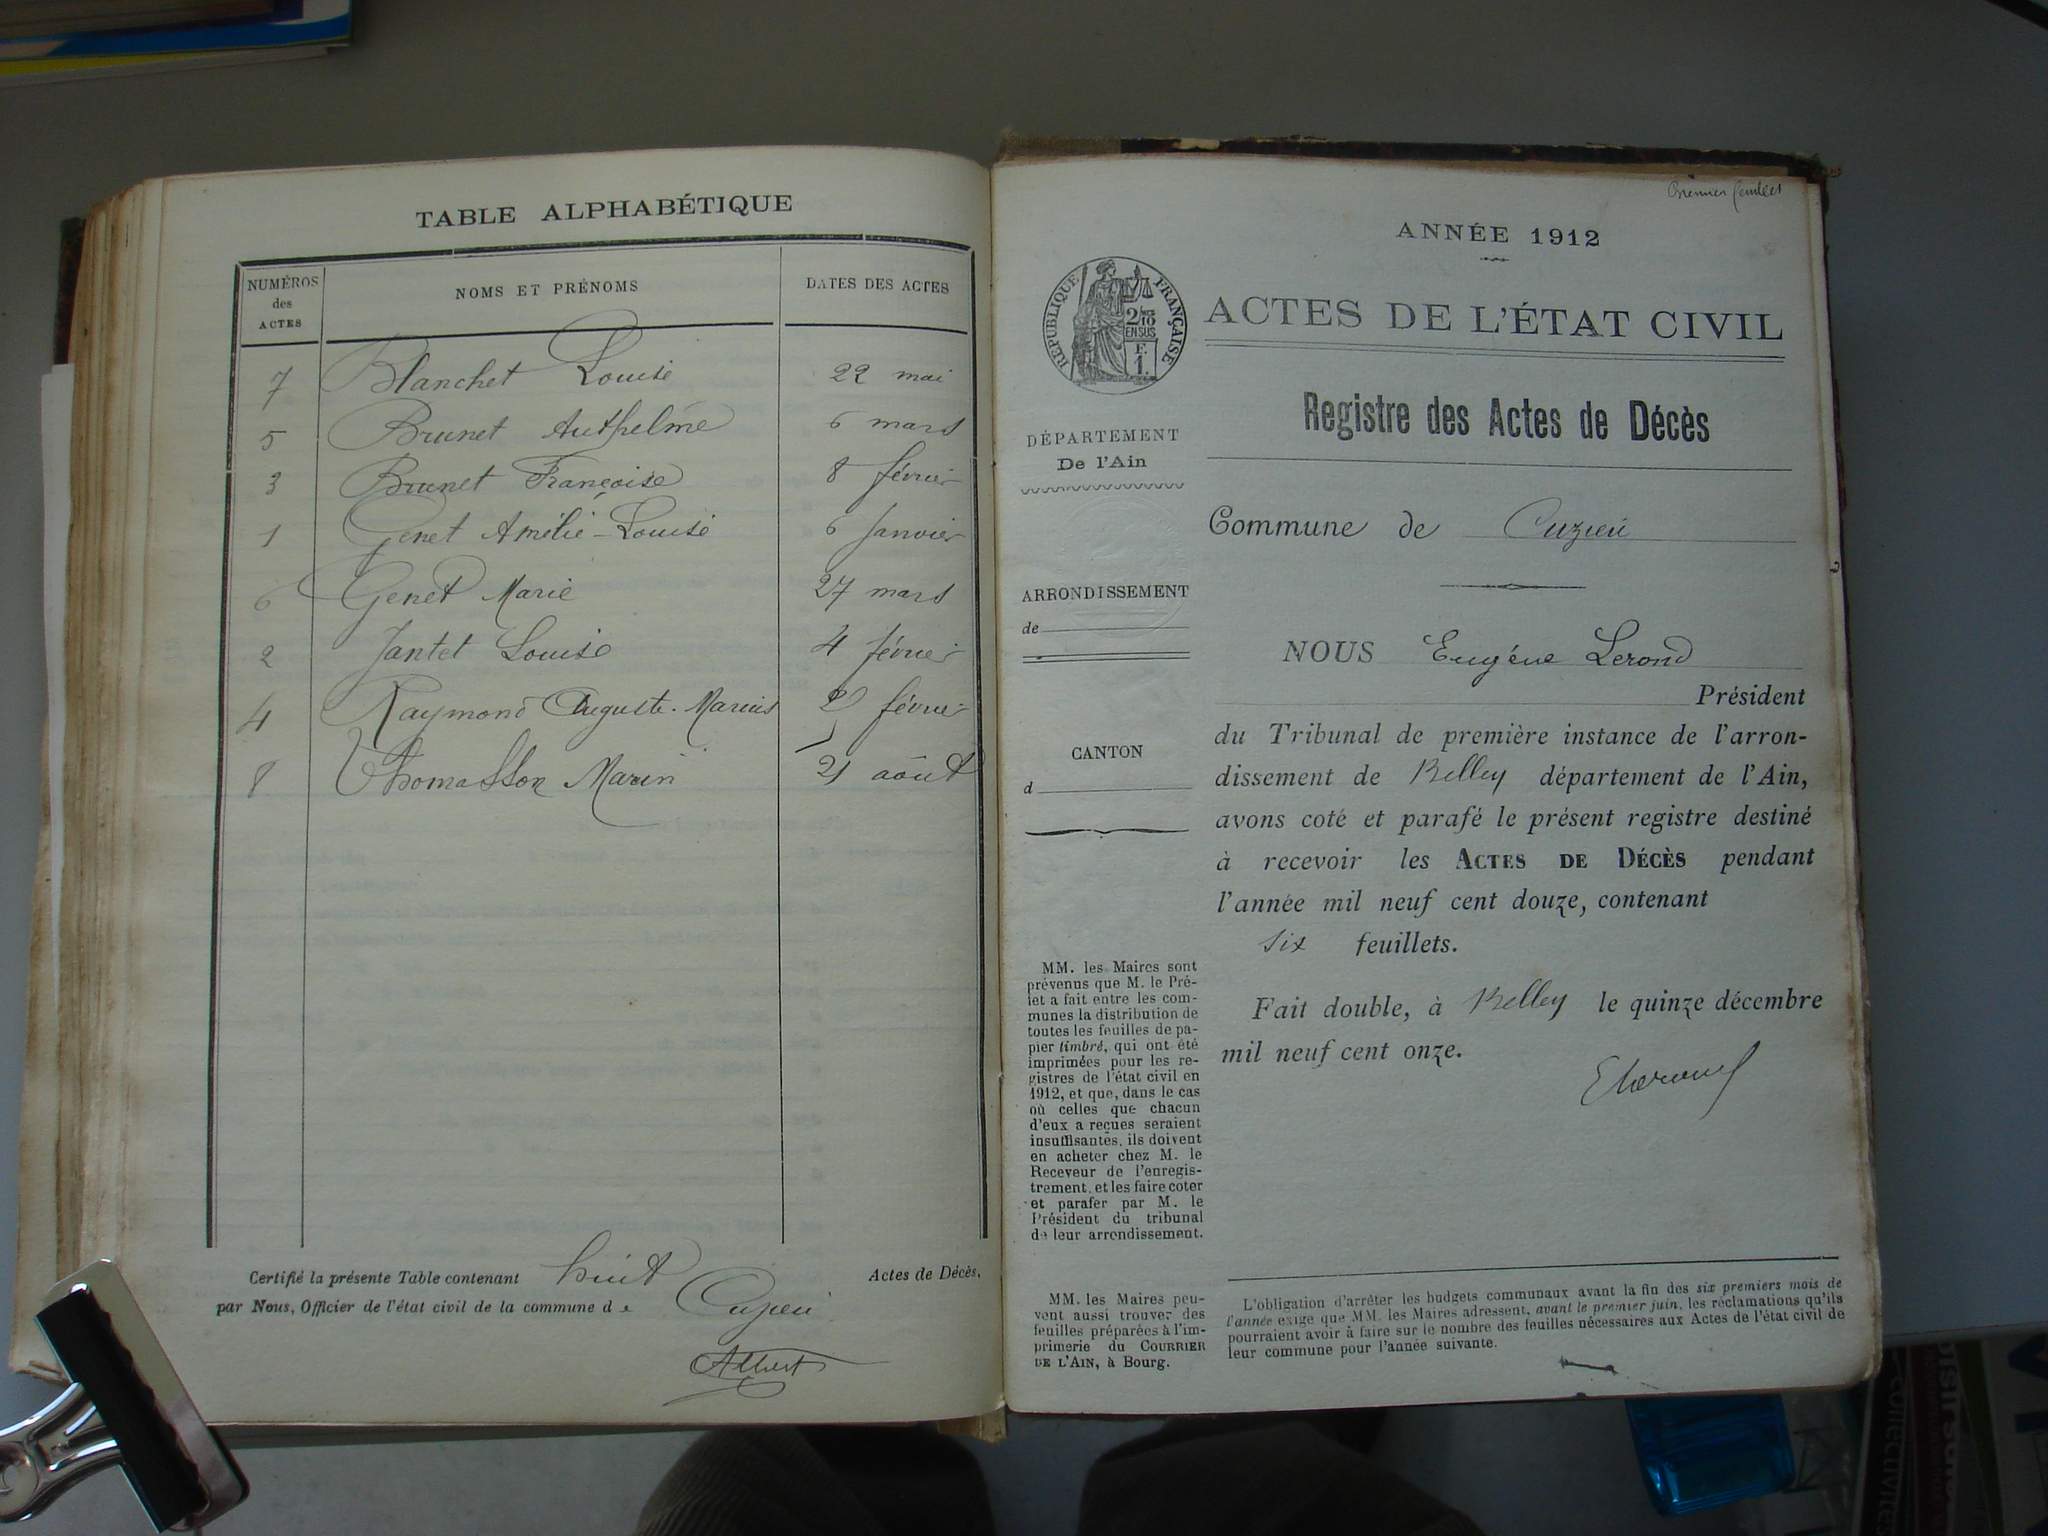 TABLE ALPHABÉTIQUE
NUMÉROS des ACTES NOMS ET PRÉNOMS DATES DES ACTES
7 Blanchet Louise 22 mai
5 Brunet Anthelme 6 mars
3 Brunet Françoise 8 février
1 Genet Amélie-Louise 6 Janvier
6 Genet Marie 27 mars
2 Jantet Louise 4 février
4 Raymond Auguste-Marius février
8 Thomasson Marin 21 août
Certifié la présente Table contenant huit Actes de Décès,
par Nous, Officier de l'état civil de la commune de Cuzieu
Albert
Premier feuillet
ANNÉE 1912
RÉPUBLIQUE FRANÇAISE
2/10
EN SUS
F.
1.
ACTES DE L'ÉTAT CIVIL
Registre des Actes de Décès
DÉPARTEMENT
De l'Ain
Commune de Cuzieu
ARRONDISSEMENT
de
CANTON
d
NOUS Eugène Lerond
Président
du Tribunal de première instance de l'arron-
dissement de Belley département de l'Ain,
avons coté et parafé le présent registre destiné
à recevoir les ACTES DE DÉCÈS pendant
l'année mil neuf cent douze, contenant
six feuillets.
Fait double, à Belley le quinze décembre
mil neuf cent onze.
MM. les Maires sont
prévenus que M. le Pré-
fet a fait entre les com-
munes la distribution de
toutes les feuilles de pa-
pier timbré, qui ont été
imprimées pour les re-
gistres de l'état civil en
1912, et que, dans le cas
où celles que chacun
d'eux a reçues seraient
insuffisantes, ils doivent
en acheter chez M. le
Receveur de l'enregis-
trement, et les faire coter
et parafer par M. le
Président du tribunal
de leur arrondissement.
MM. les Maires peu-
vent aussi trouver des
feuilles préparées à l'im-
primerie du COURRIER
DE L'AIN, à Bourg.
L'obligation d'arrêter les budgets communaux avant la fin des six premiers mois de
l'année exige que MM. les Maires adressent, avant le premier juin, les réclamations qu'ils
pourraient avoir à faire sur le nombre des feuilles nécessaires aux Actes de l'état civil de
leur commune pour l'année suivante.